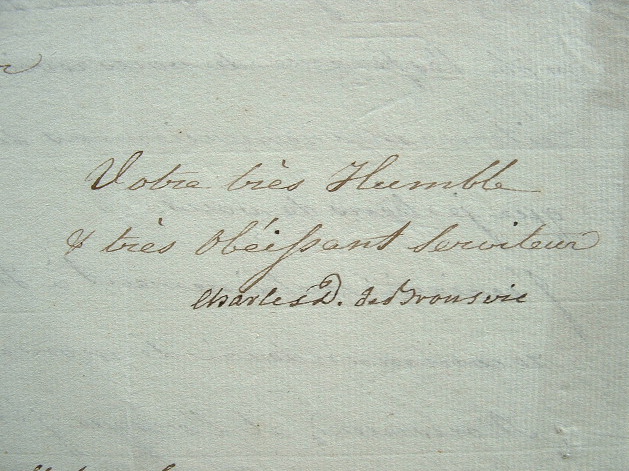 Votre très Humble
& très Obéissant Serviteur
Charles D. de Bronsvic